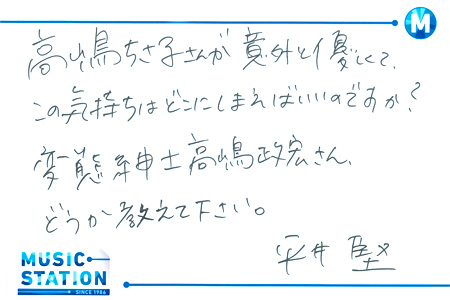 M
高嶋ちさ子さんが意外と優しくて、
この気持ちはどこにしまえばいいのですか?
変態紳士高嶋政宏さん、
どうか教えて下さい。
平井 堅
MUSIC
STATION
SINCE 1986